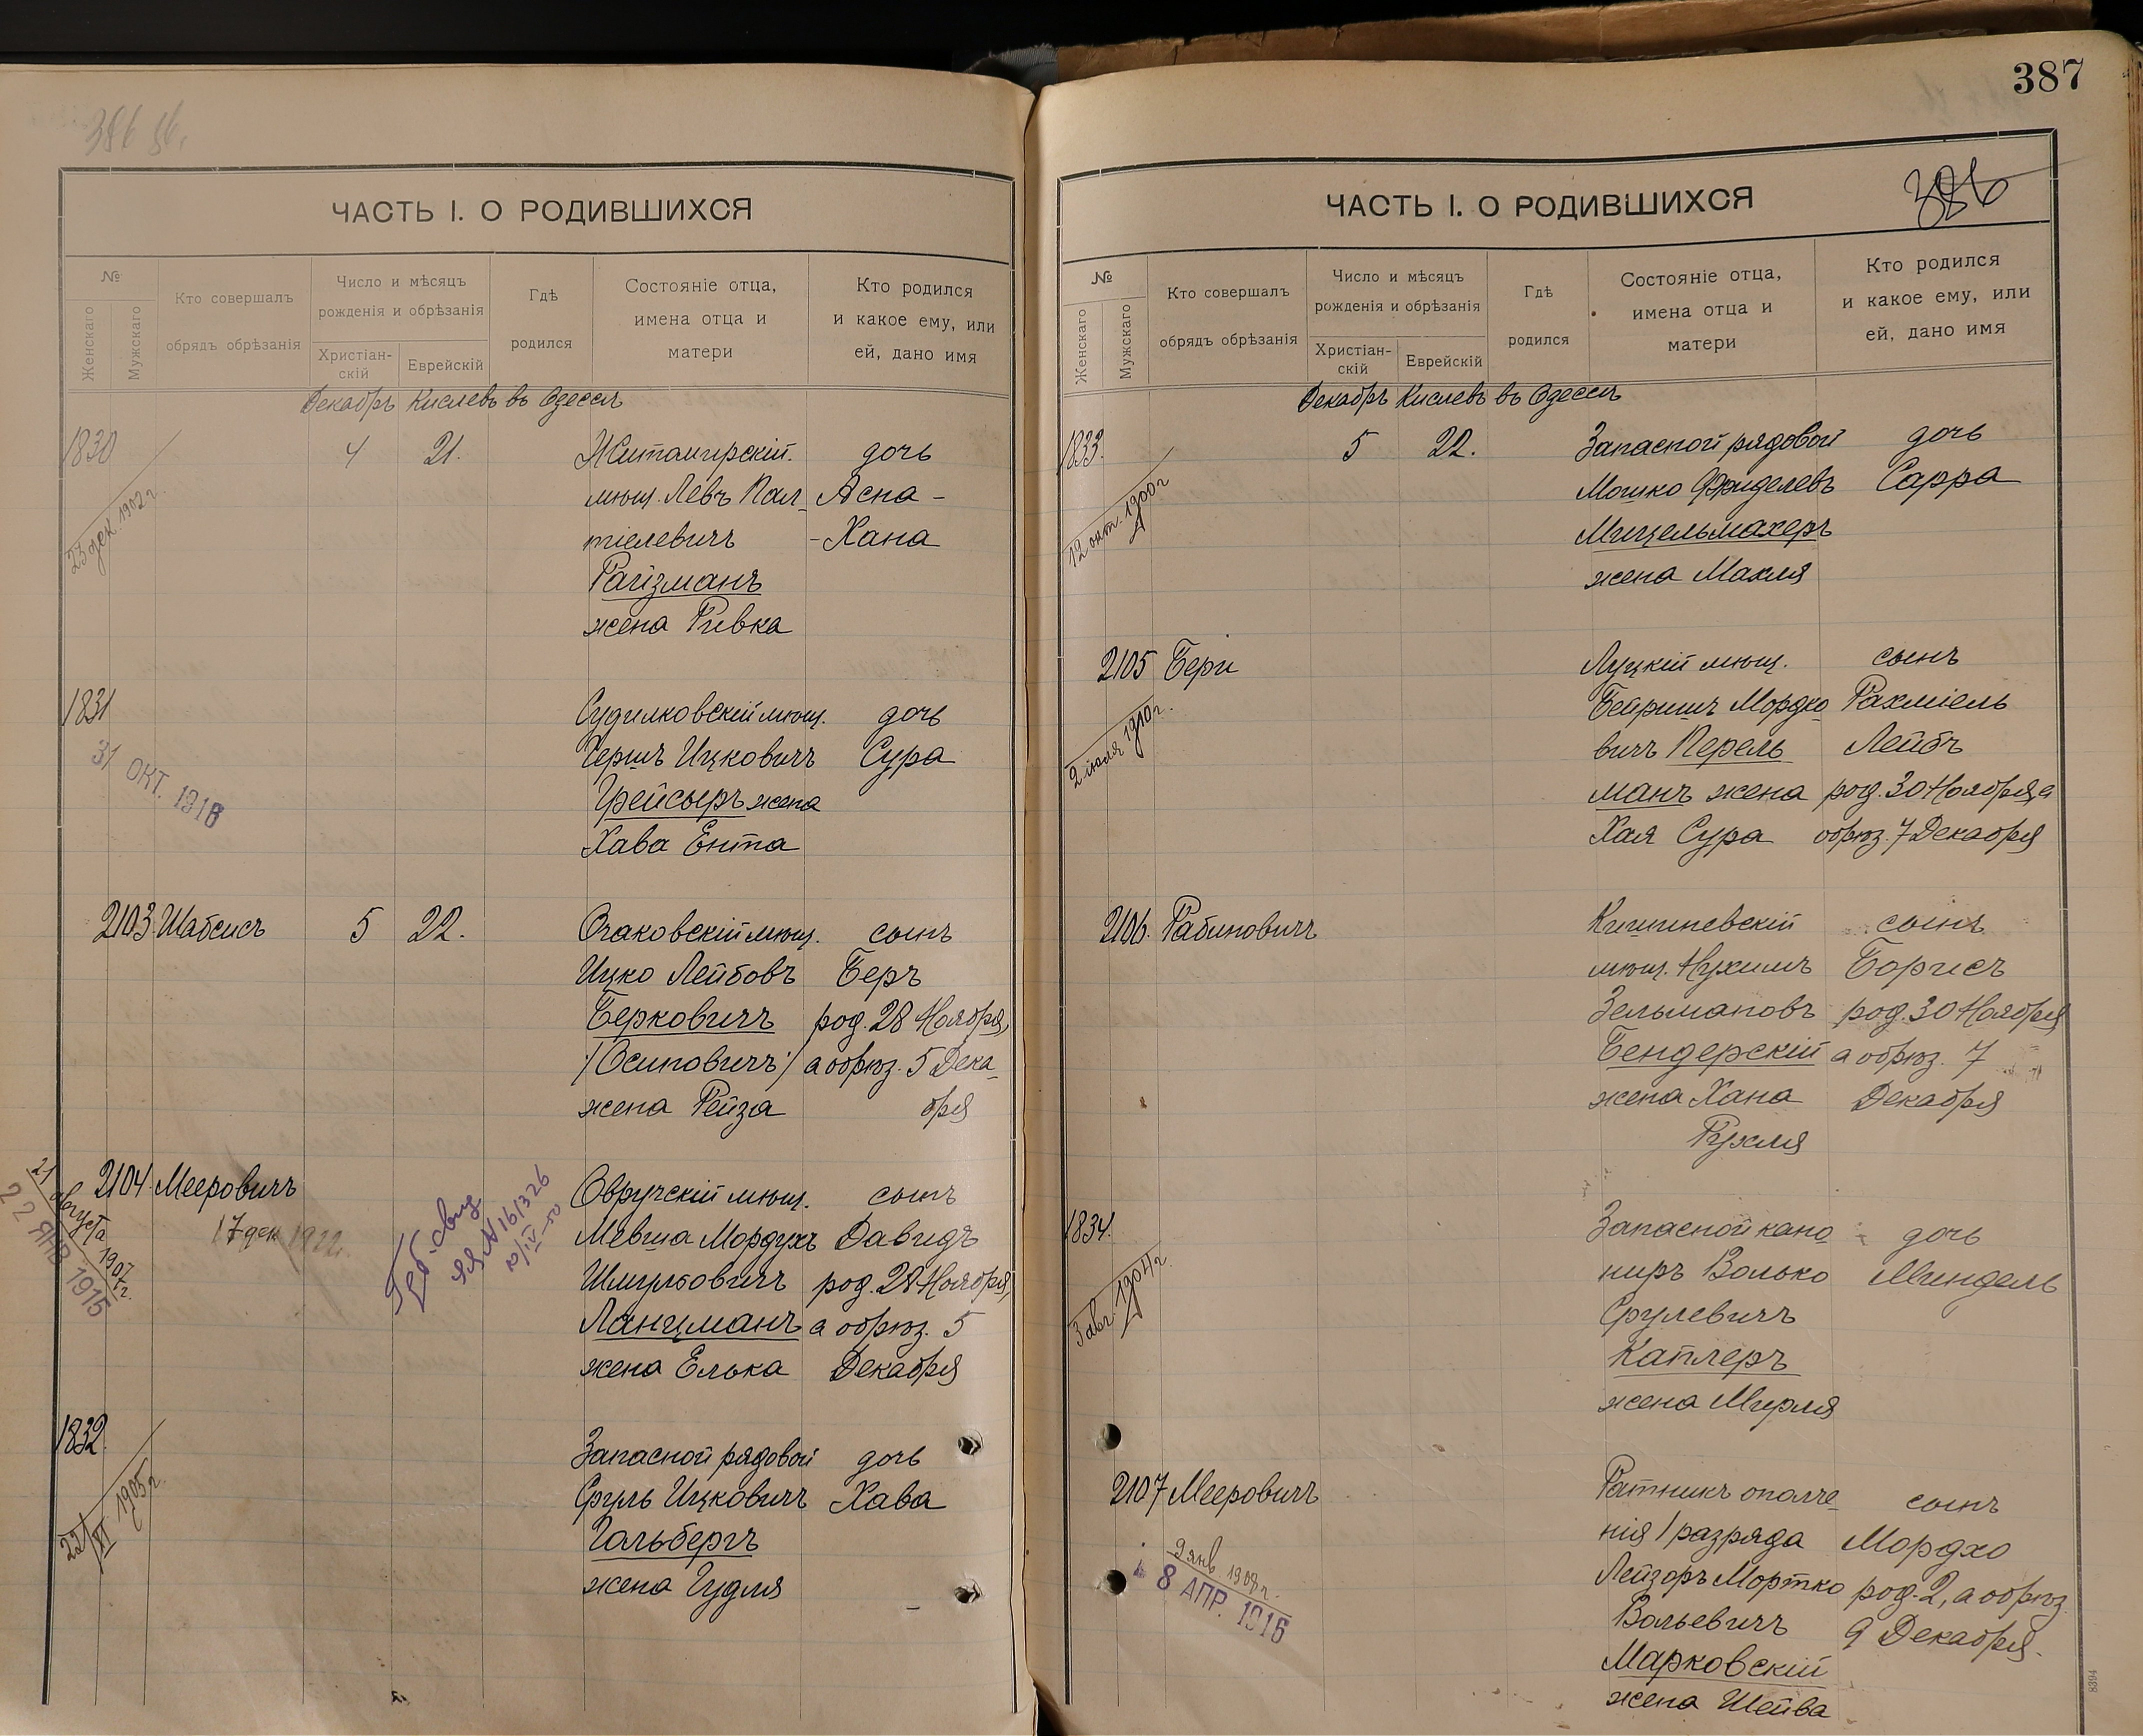 386 об.
ЧАСТЬ I. О РОДИВШИХСЯ
№
Женскаго
Мужскаго
Кто совершалъ
обрядъ обрѣзанія
Число и мѣсяцъ
рожденія и обрѣзанія
Христіан-
скій
Еврейскій
Гдѣ
родился
Состояніе отца,
имена отца и
матери
Кто родился
и какое ему, или
ей, дано имя
Декабрь Кислевъ въ Одессѣ
1830 4 21. Житомирскій. дочь
мѣщ. Левъ Пал Асна -
тіелевичъ -Хана
Райзманъ
жена Ривка
23 дек. 1902 г.
1831 Судилковскій мѣщ. дочь
Гершъ Ицковичъ Сура
Грейсыръ жена
Хава Ента
31 ОКТ. 1916
2103 Шабсисъ 5 22. Очаковскій мѣщ. сынъ
Ицко Лейбовъ Беръ
Берковичъ род. 28 Ноября,
/Осиповичъ/ а обрѣз. 5 Дека-
жена Рейза бря
2104 Мееровичъ Овручскій мѣщ. сынъ
Мевша Мордухъ Давидъ
Шмулевичъ род. 28 Ноября,
Ланцманъ а обрѣз. 5
жена Елька Декабря
21 августа 1907 г.
22 ЯНВ 1915
17 дек 1922.
ЯЯ № 161326
10/IV-50
1832 Запасной рядовой дочь
Сруль Ицковичъ Хава
Гольбергъ
жена Гудля
22/XI 1905 г.
387
386
ЧАСТЬ I. О РОДИВШИХСЯ
№
Женскаго
Мужскаго
Кто совершалъ
обрядъ обрѣзанія
Число и мѣсяцъ
рожденія и обрѣзанія
Христіан-
скій
Еврейскій
Гдѣ
родился
Состояніе отца,
имена отца и
матери
Кто родился
и какое ему, или
ей, дано имя
Декабрь Кислевъ въ Одессѣ
1833. 5 22. Запасной рядовой дочь
Мошко Фриделевъ Сарра
Мицельмахеръ
жена Махля
12 окт. 1900 г
2105 Бери Луцкій мѣщ. сынъ
Беаришъ Мордко Рахміель
вичъ Перель Лейбъ
манъ жена род. 30 Ноября, а
Хая Сура обрѣз. 7 Декабря
2 іюля 1910 г.
2106. Рабиновичъ Кишиневскій сынъ
мѣщ. Нухимъ Борисъ
Зельмановъ род. 30 Ноября
Бендерскій а обрѣз. 7
жена Хана Декабря
Рухля
1834. Запасной кано дочь
ниръ Волько Миндель
Срулевичъ
Каплеръ
жена Мирля
3 авг. 1904 г.
2107 Мееровичъ Ратникъ ополче- сынъ
нія I разряда Мордхо
Лейзоръ Мортко род. 2, а обрѣз.
Вольевичъ 9 Декабря.
Марковскій
жена Шейва
9 янв. 1908 г.
8 АПР. 1916
8394